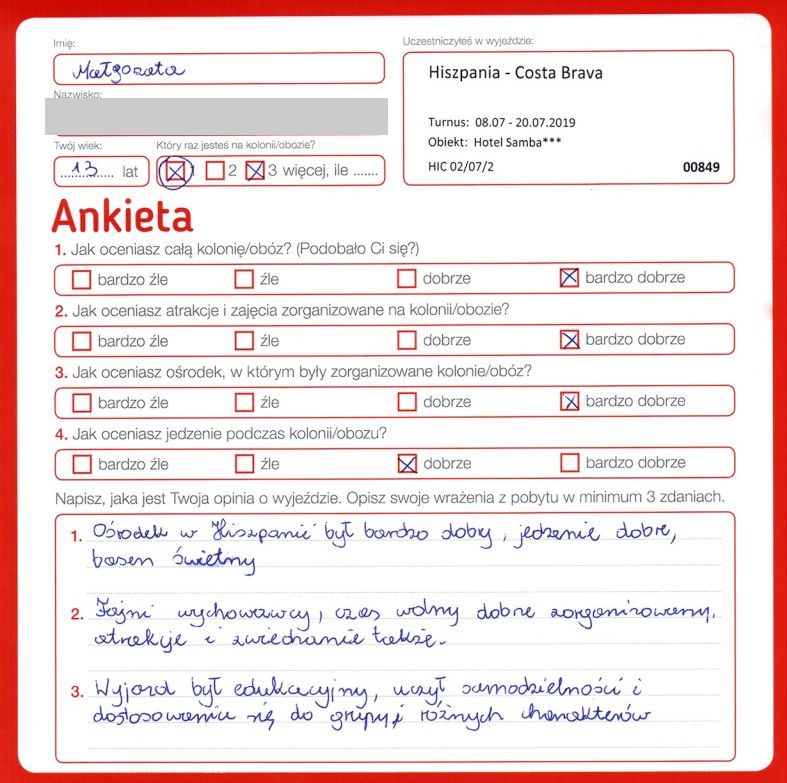 Imię:
Małgorzata
Nazwisko:
Twój wiek:
13 lat
Który raz jesteś na kolonii/obozie?
1 2 3 więcej, ile .......
Uczestniczyłeś w wyjeździe:
Hiszpania - Costa Brava
Turnus: 08.07 - 20.07.2019
Obiekt: Hotel Samba***
HIC 02/07/2 00849
Ankieta
1. Jak oceniasz całą kolonię/obóz? (Podobało Ci się?)
bardzo źle źle dobrze bardzo dobrze
2. Jak oceniasz atrakcje i zajęcia zorganizowane na kolonii/obozie?
bardzo źle źle dobrze bardzo dobrze
3. Jak oceniasz ośrodek, w którym były zorganizowane kolonie/obóz?
bardzo źle źle dobrze bardzo dobrze
4. Jak oceniasz jedzenie podczas kolonii/obozu?
bardzo źle źle dobrze bardzo dobrze
Napisz, jaka jest Twoja opinia o wyjeździe. Opisz swoje wrażenia z pobytu w minimum 3 zdaniach.
1. Ośrodek w Hiszpanii był bardzo dobry, jedzenie dobre,
basen świetny
2. Fajni wychowawcy, czas wolny dobrze zorganizowany,
atrakcje i zwiedzanie także.
3. Wyjazd był edukacyjny, uczył samodzielności i
dostosowania się do grupy i różnych charakterów